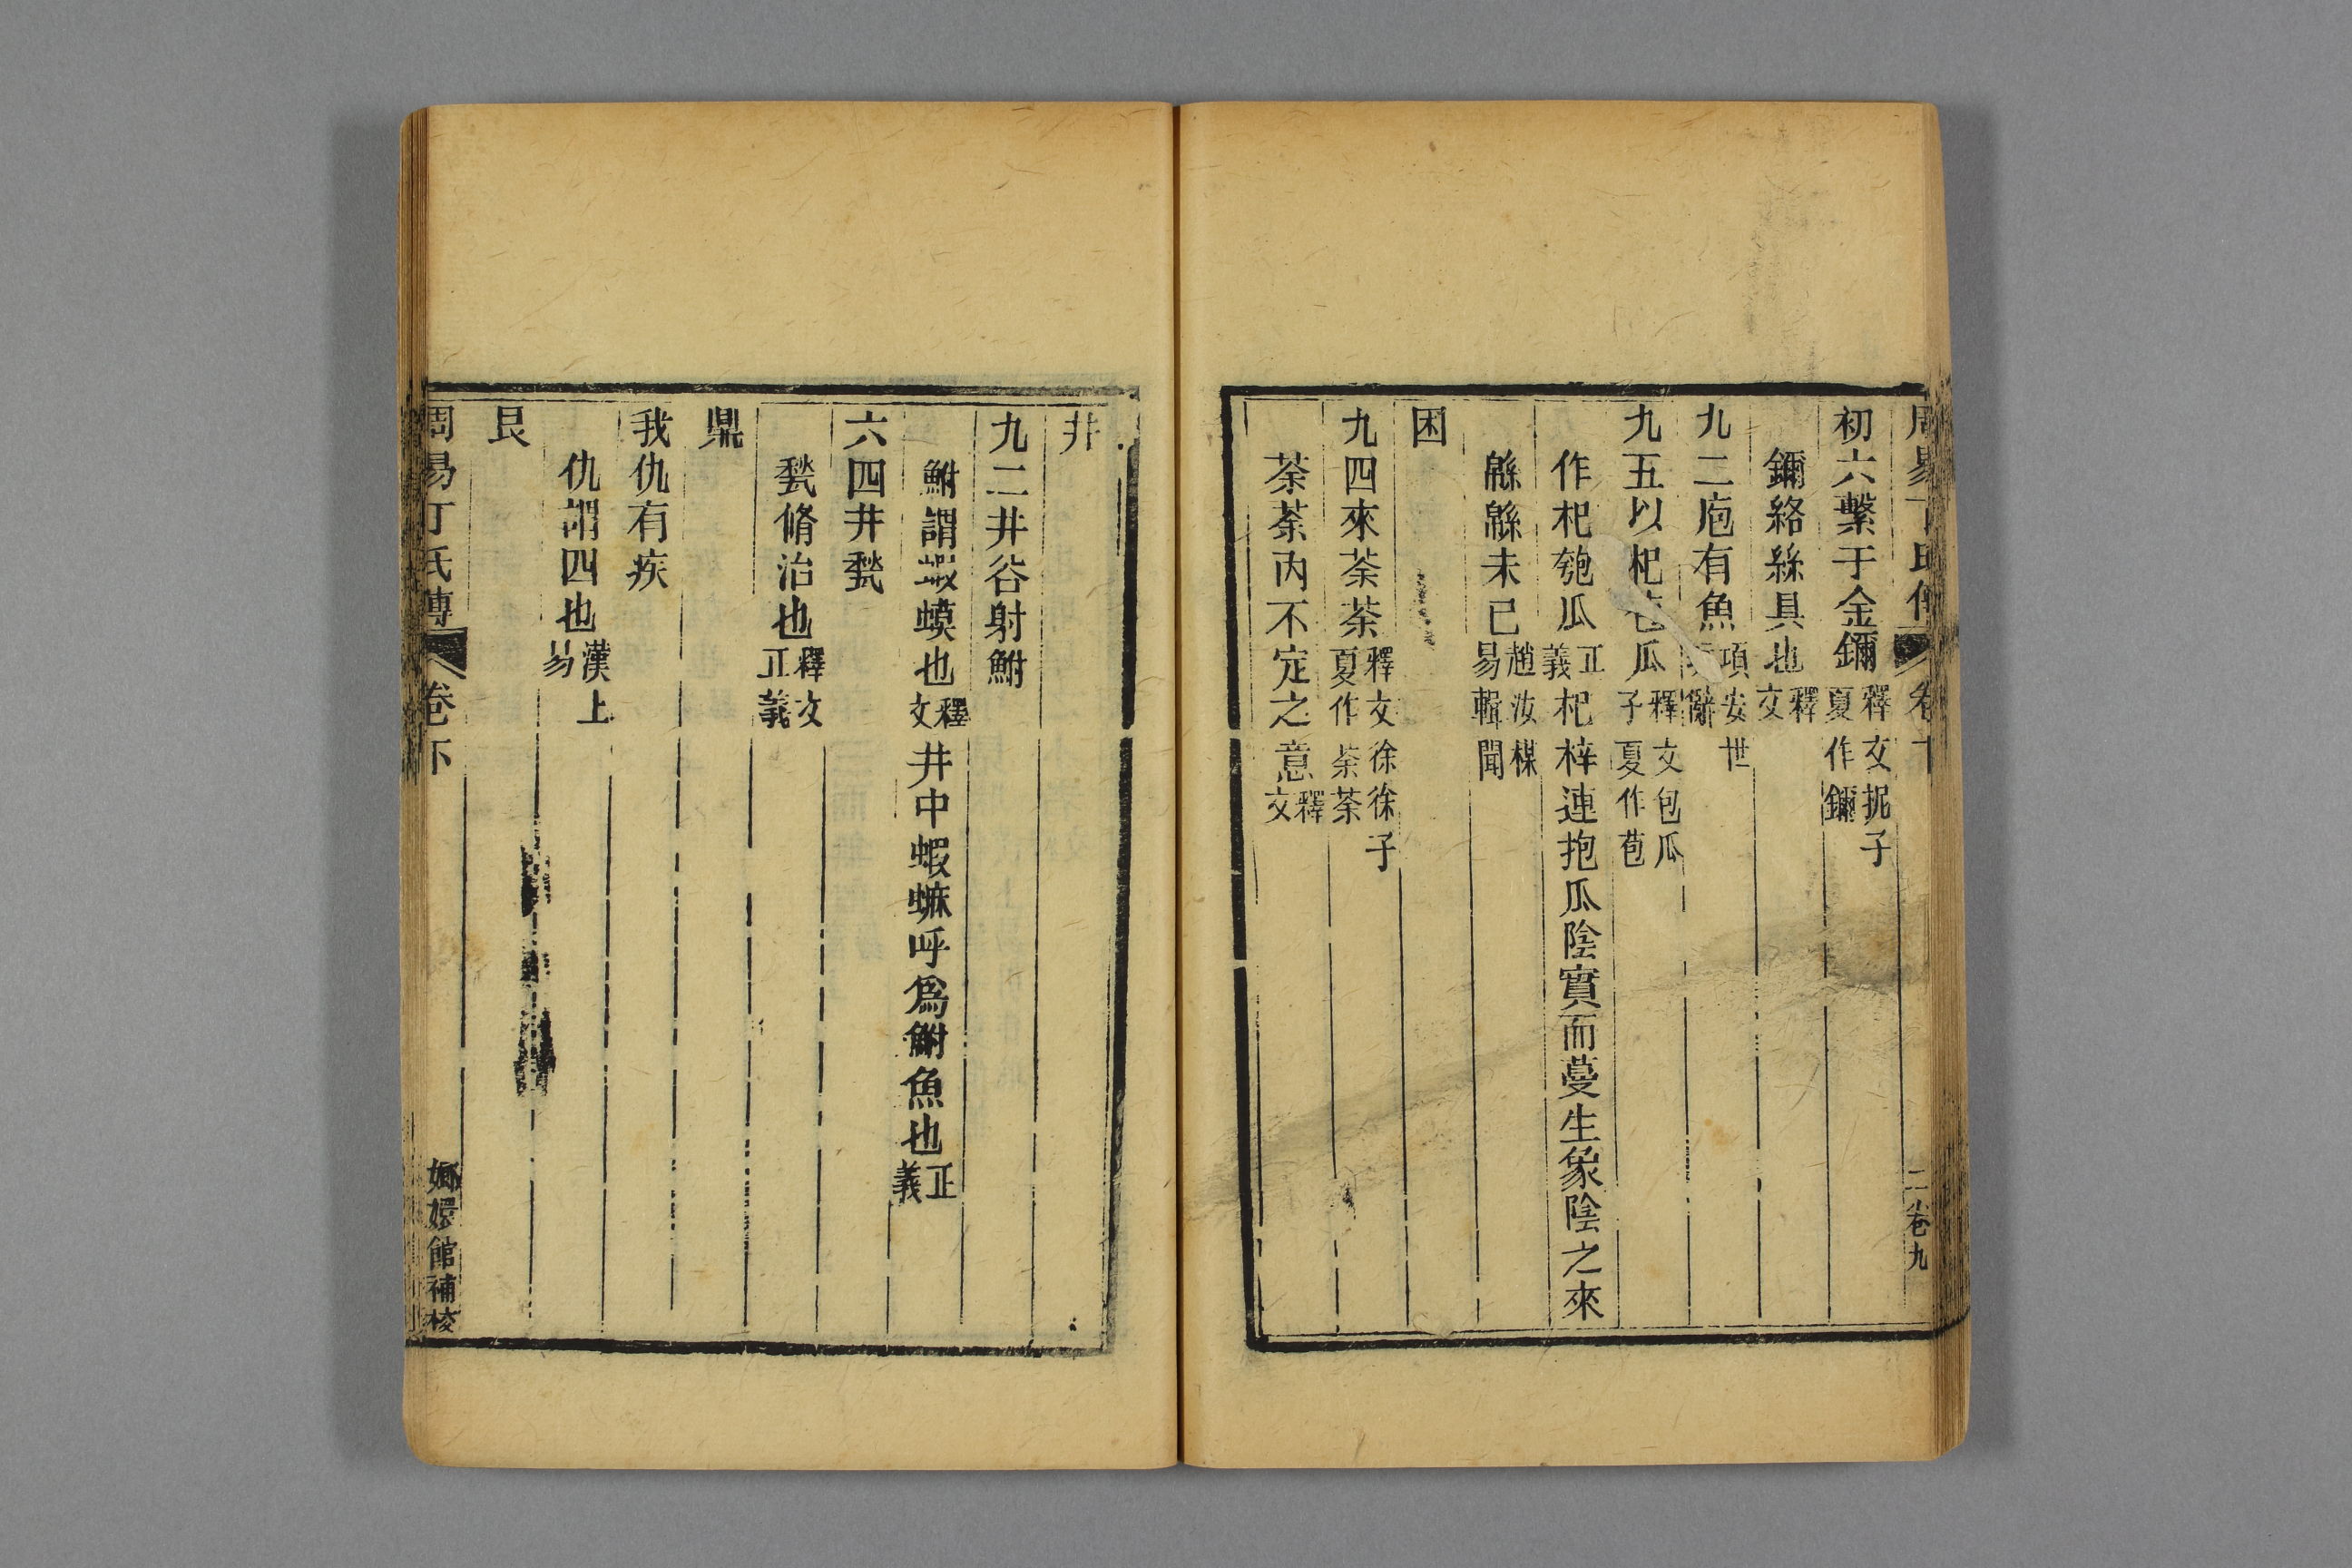 初六繫于金鑈釋文抳子夏作鑈
鑈絡絲具也釋文
九二庖有魚項安世
九五以杞苞瓜釋文包瓜子夏作苞
作杞匏瓜正義杞梓連抱瓜陰實而蔓生象陰之來
緜緜未已趙汝楳易輯聞
困
九四來荼荼釋文徐徐子夏作荼荼
荼荼內不定之意釋文
井
九二井谷射鮒
鮒謂蝦蟆也釋文井中蝦蟆呼爲鮒魚也正義
六四井甃
甃脩治也釋文正義
鼎
我仇有疾
仇謂四也漢上易
艮
周易丁氏傳 卷下 嫏嬛館補校